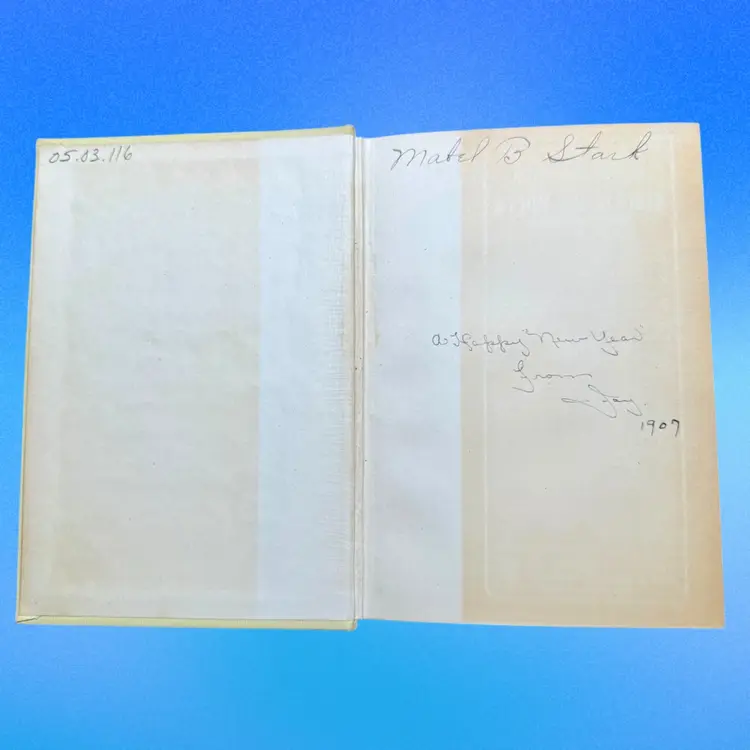 05.03.116
Mabel B Stark
A Happy "New Year"
From
Jay.
1907